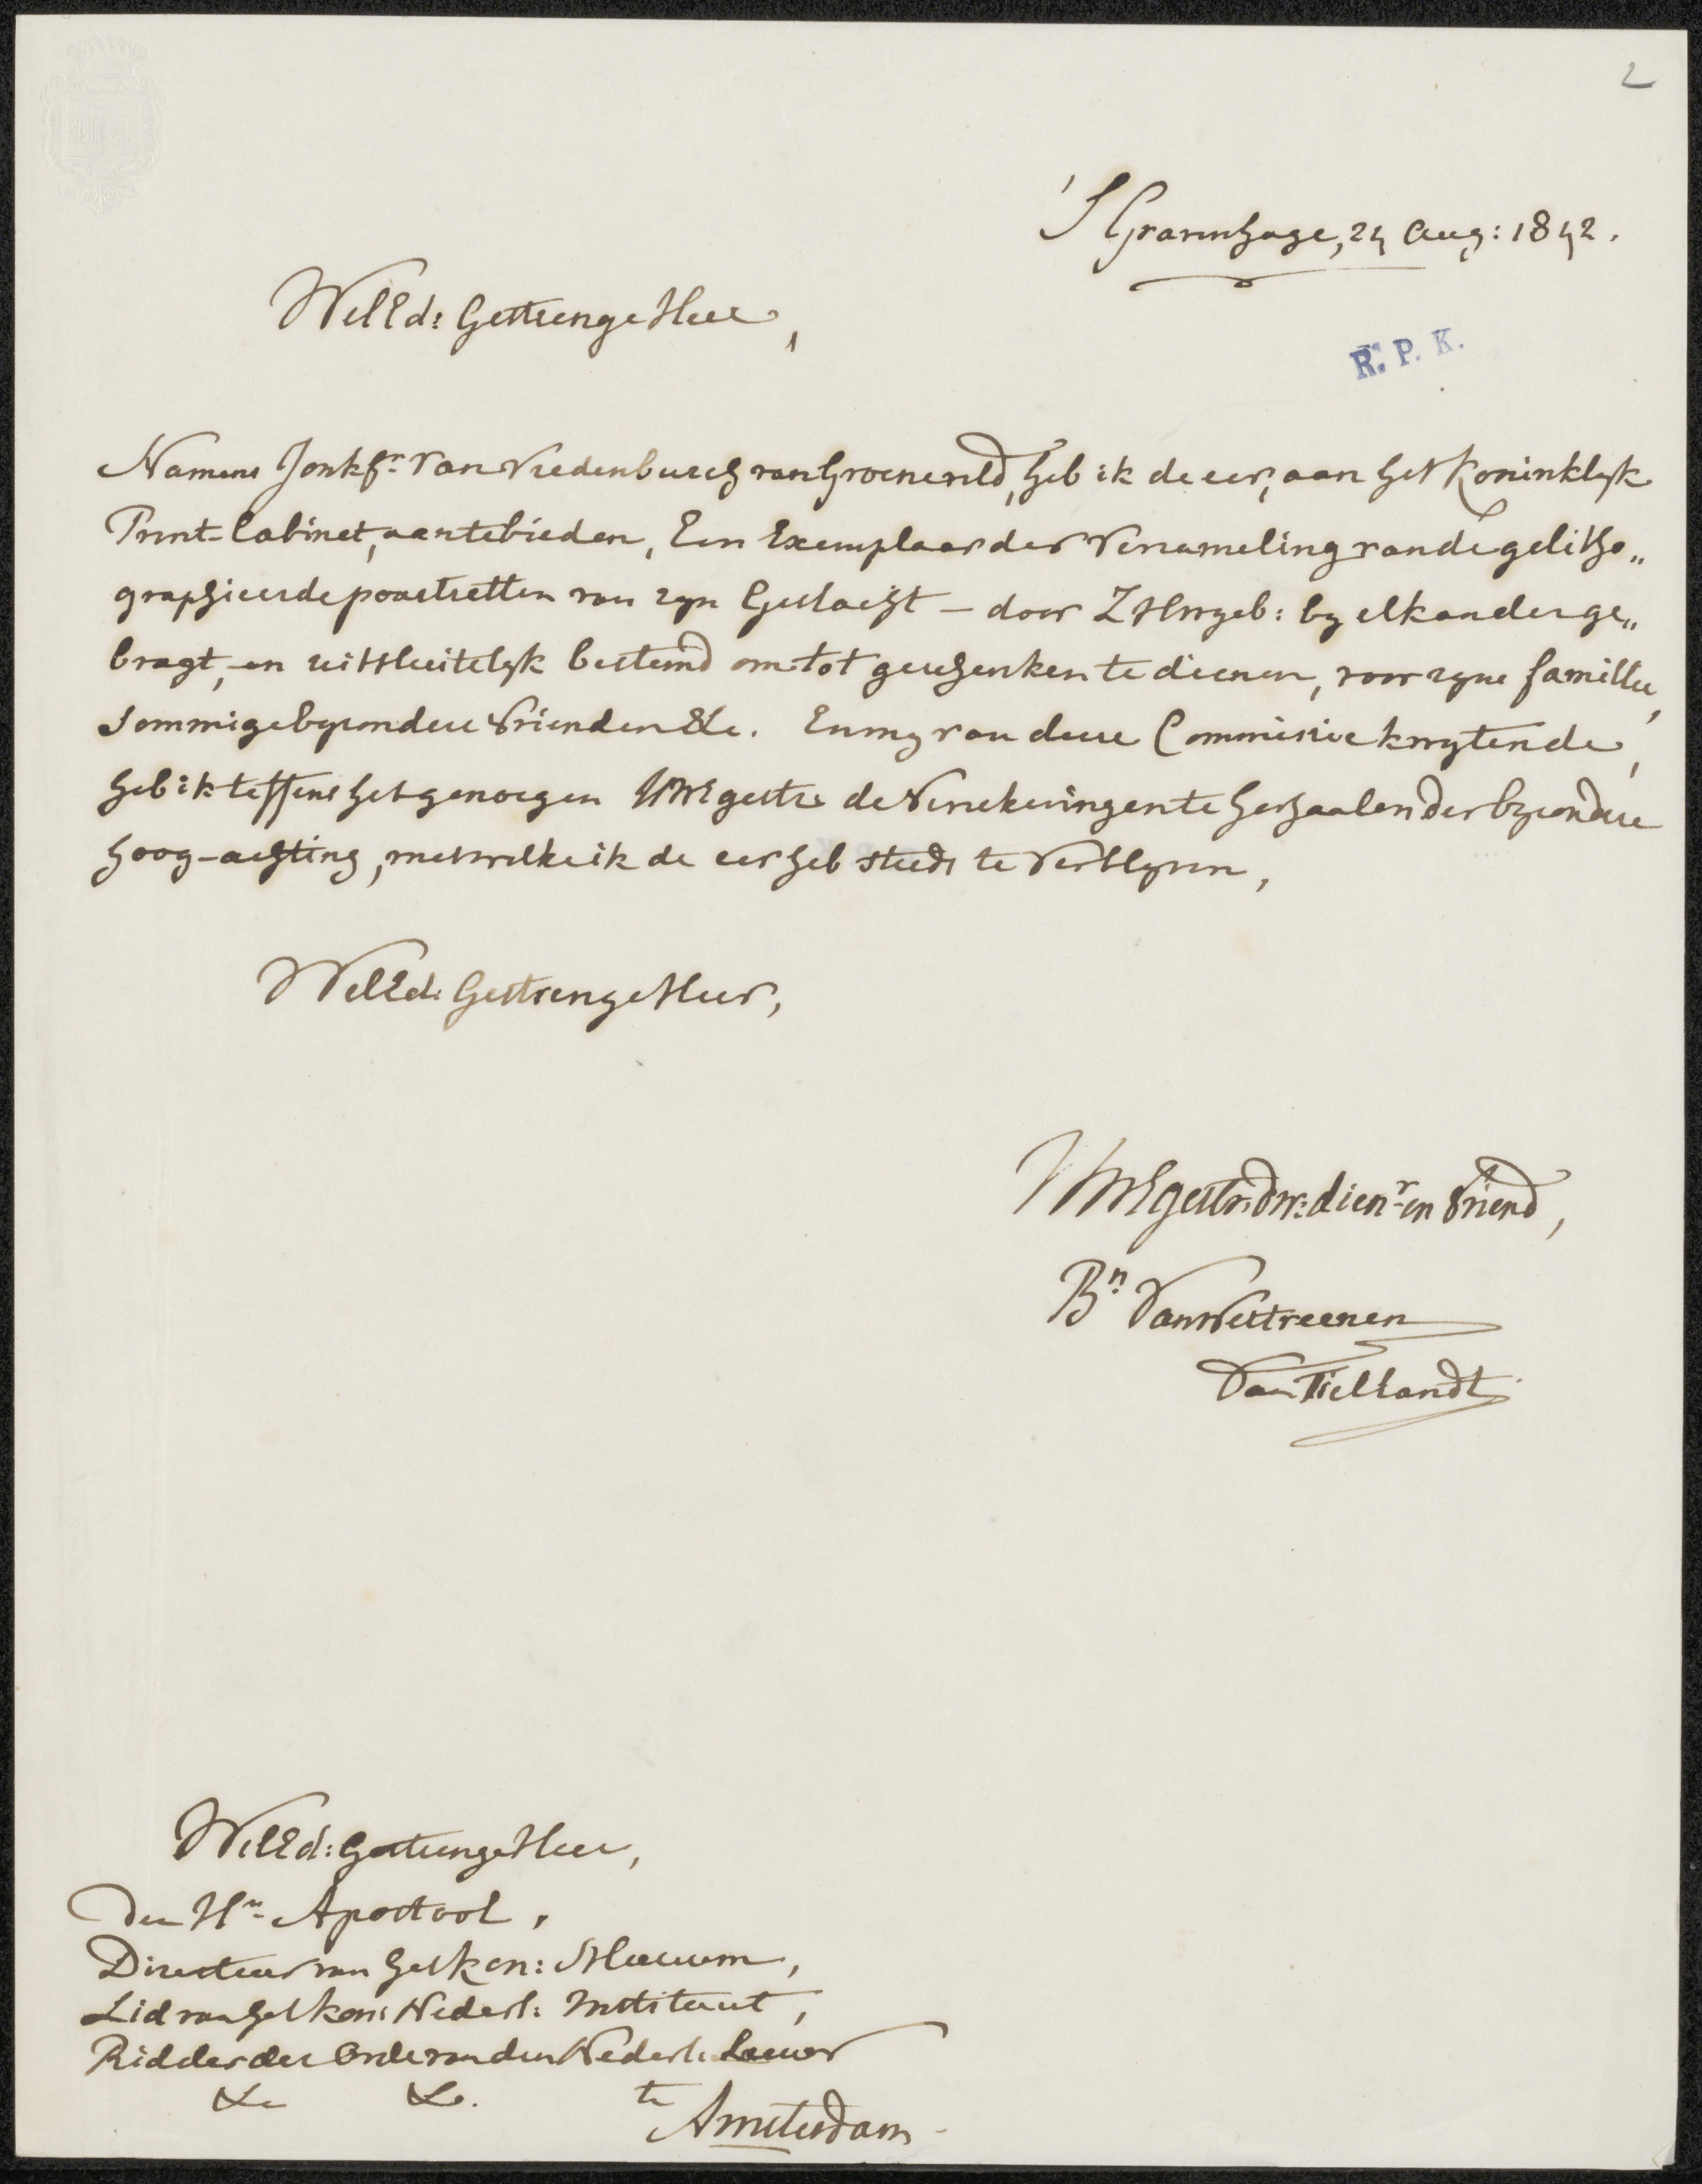 2
'S Gravenhage, 24 Aug: 1842.
WelEd: Gestrenge Heer,
R. P. K.
Namens Jonkhr. Van Vredenburch van Groeneveld, heb ik de eer, aan het Koninklyk
Print-Cabinet, aantebieden, Een Exemplaar der Verzameling van de gelitho„
graphieerde pourtretten van zyn Geslacht – door ZHWgeb: by elkander ge„
bragt, en uitsluitelyk bestemd om tot geschenken te dienen, voor zyne famillie,
sommige byzondere Vrienden &c. En my van deze Commissie kwytende,
heb ik teffens het genoegen UWEGestr: de Verzekeringen te herhaalen der byzondere
hoog-achting, met welke ik de eer heb steeds te Verblyven,
WelEd: Gestrenge Heer,
UWEGestr: Dw: dienr. en Vriend,
Bn. Van Westreenen
Van Tiellandt
WelEd: Gestrenge Heer,
Den Hr. Apostool,
Directeur van het Kon: Museum,
Lid van het Kon: Nederl: Instituut,
Ridder der Orde van den Nederl: Leeuw
&c &c. te
Amsterdam